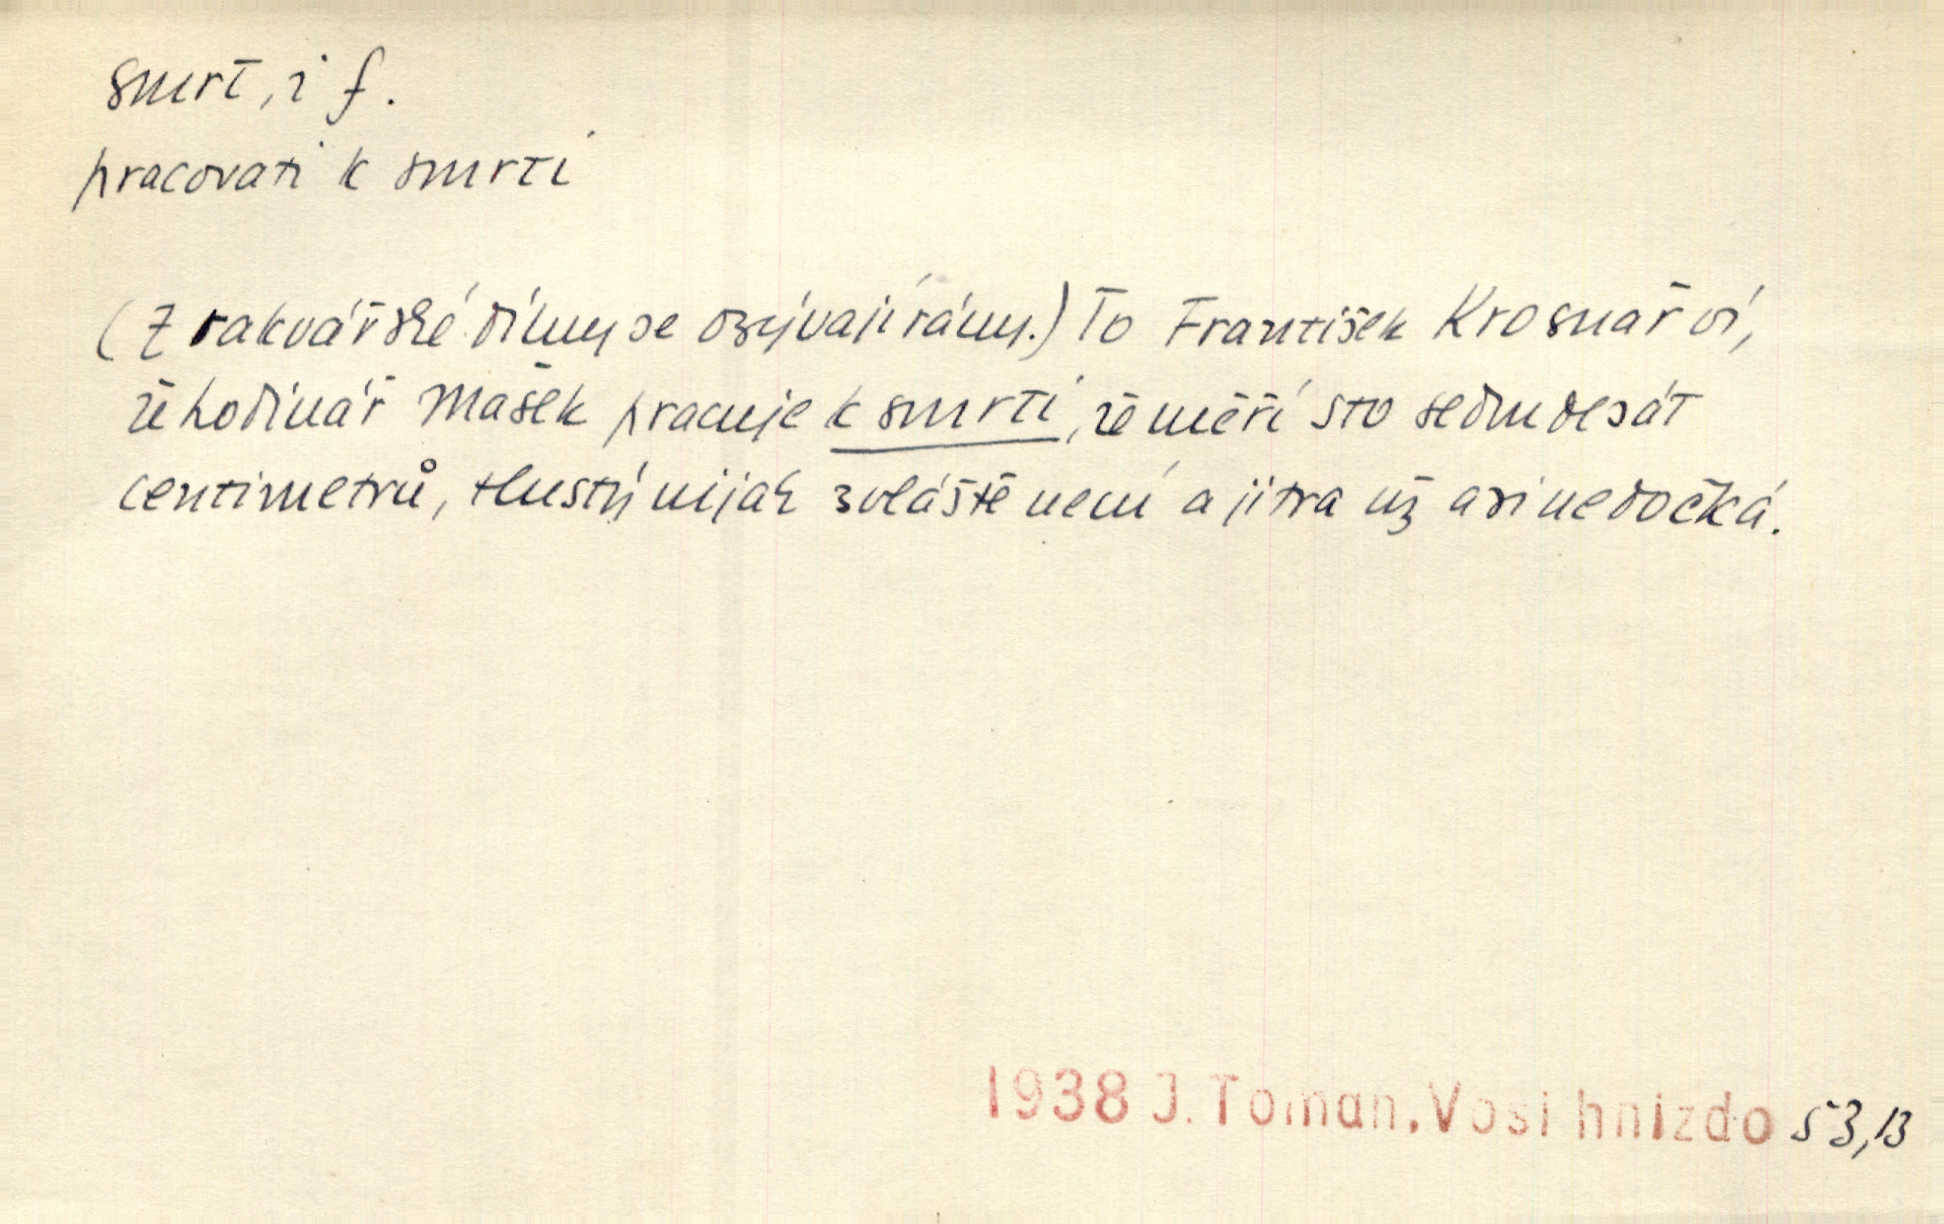 smrt, i f.
pracovati k smrti
(Z rakvářské dílny se ozývají rány.) To František Krosnář ví,
že hodinář Mašek pracuje k smrti, že měří sto sedmdesát
centimetrů, tlustý nijak zvláště není a jitra už asi nedočká.
1938 J. Toman. Vosi hnizdo 53,13